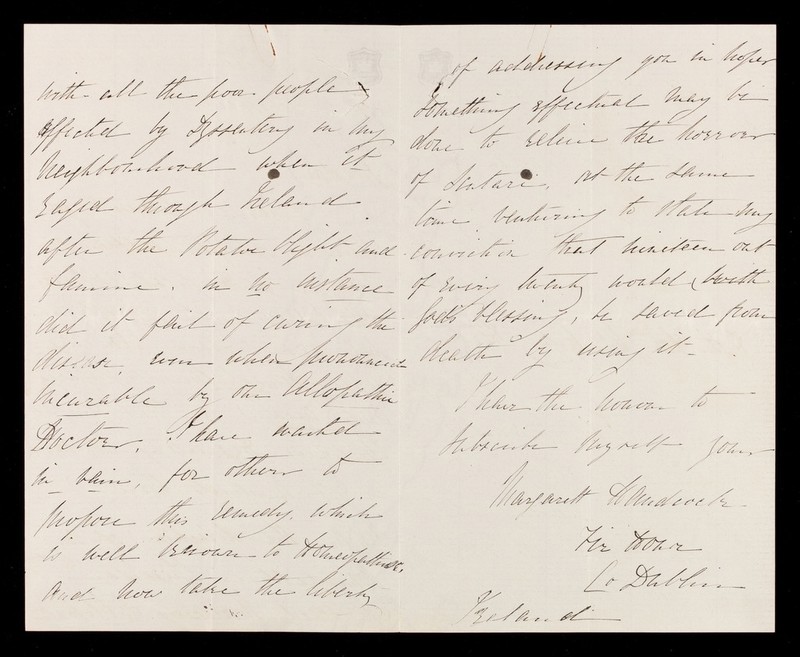 with all the poor people
affected by Dyssentery in my
Neighbourhood when it
raged through Ireland
after the Potatoe blight and
famine. in no instance
did it fail of curing the
disease, even when pronounced
incurable by our Allopathic
Doctors. I have waited
in vain, for others to
propose this remedy. which
is well known to Homeopathists,
And now take the liberty
of addressing you in hopes
Something effectual may be
done to relieve the horrors
of Scutari, at the same
time venturing to state my
conviction that nineteen out
of every twenty would (with
God's blessing), be saved from
death by using it.
I have the honour to
Subscribe Myself Your
Margarett Handcock
Fir House
Co Dublin
Ireland